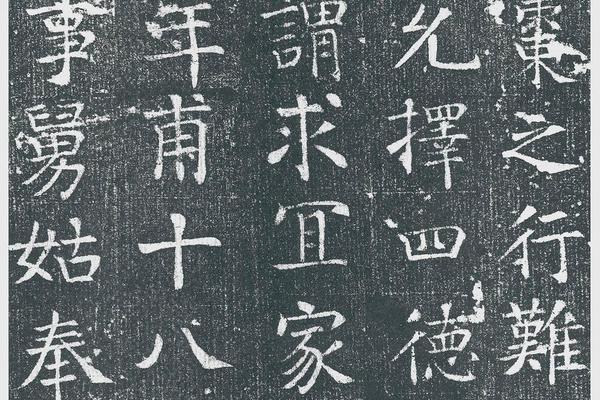 之行難
允擇四德
謂求冝家
年甫十八
事舅姑奉